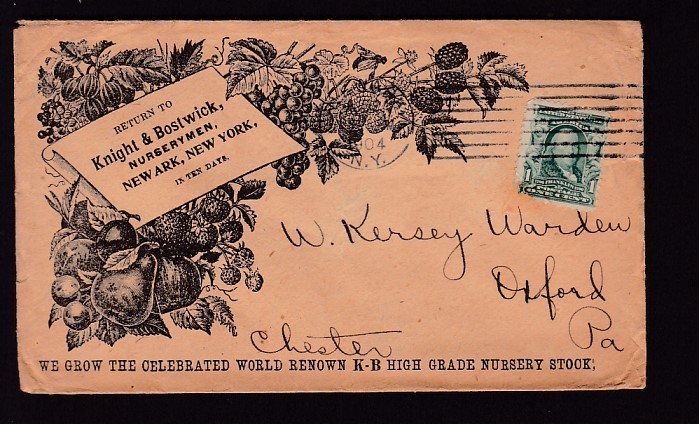 RETURN TO
Knight & Bostwick,
NURSERYMEN,
NEWARK, NEW YORK,
IN TEN DAYS.
04
N.Y.
1 FRANKLIN 1
POSTAGE
ONE CENT
W. Kersey Warden
Oxford
Pa
Chester
WE GROW THE CELEBRATED WORLD RENOWN K-B HIGH GRADE NURSERY STOCK,